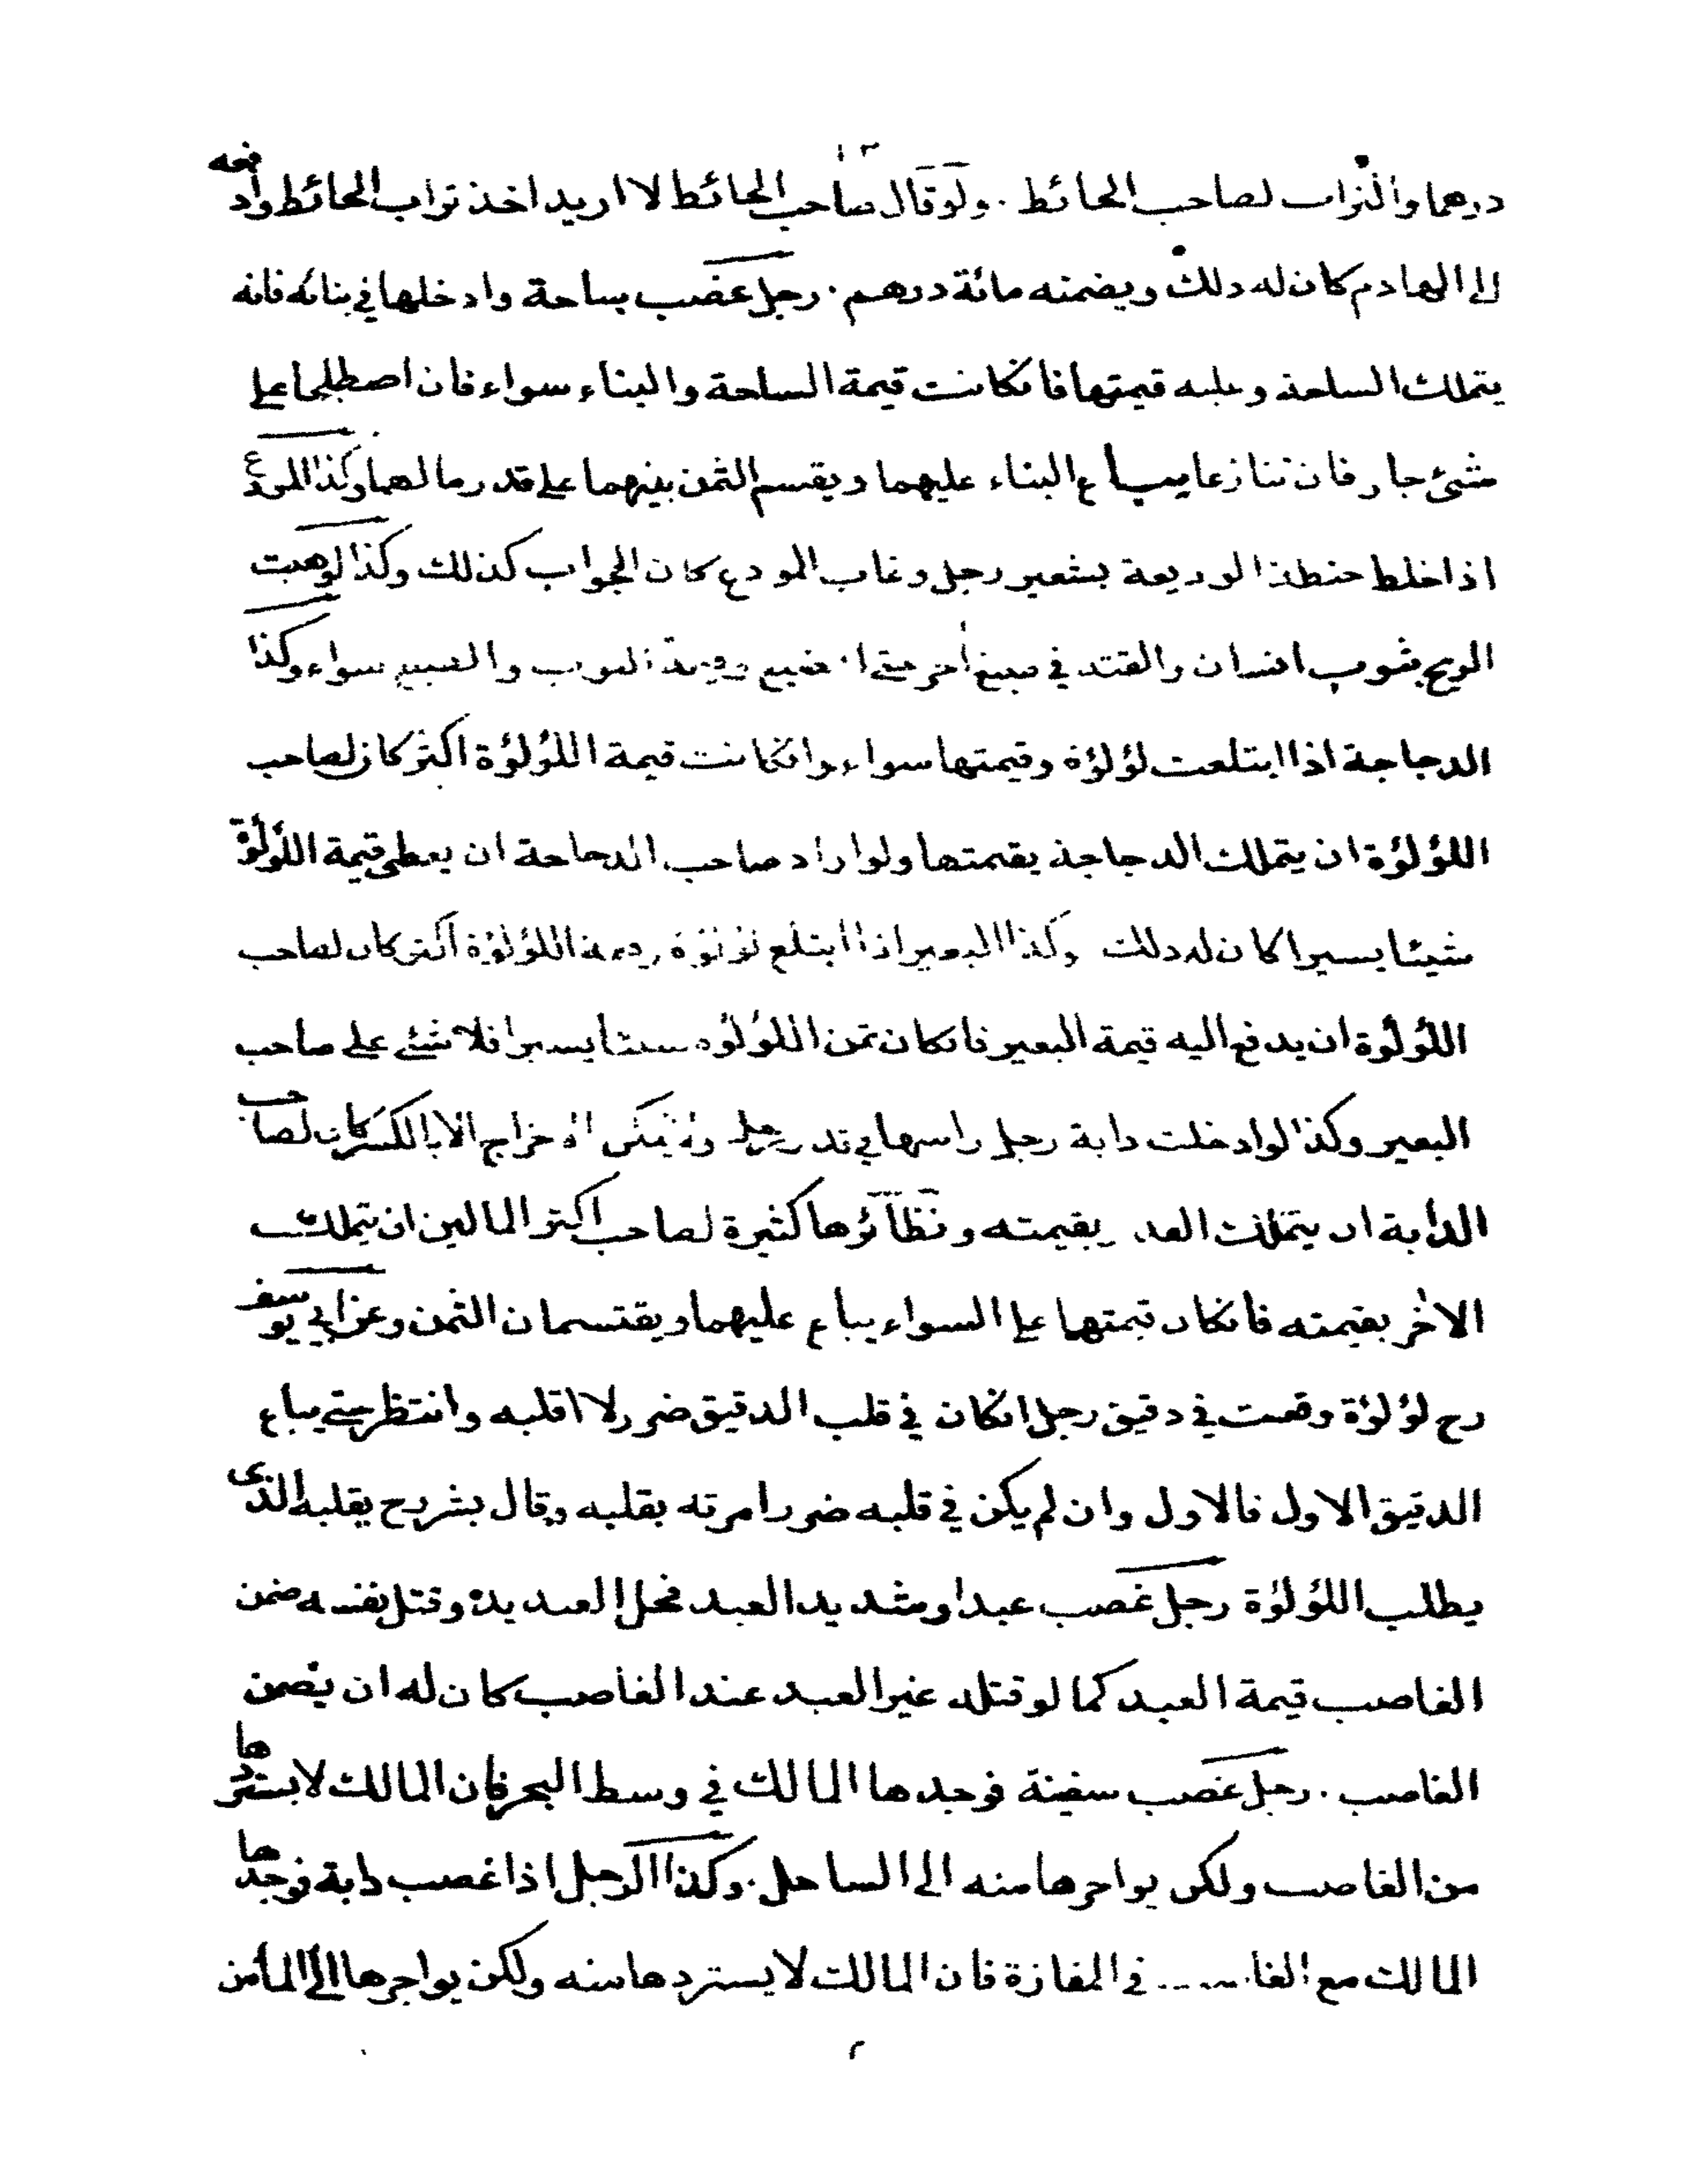 درهما والتراب لصاحب الحائط . ولو قال صاحب الحائط لا اريد اخذ تراب الحائط وادفعه
الى الهادم كان له ذلك ويضمنه مائة درهم . رجل غصب ساحة وادخلها في بنائه فانه
يتملك الساحة وعليه قيمتها فانكانت قيمة الساحة والبناء سواء فان اصطلحا على
شئ جاز فان تنازعا يباع البناء عليهما ويقسم الثمن بينهما على قدر مالهما وكذا المودع
اذا خلط حنطة الوديعة بشعير رجل وغاب المودع كان الجواب كذلك وكذا لوهبت
الريح بثوب انسان والقته في صبغ اخر حتى انصبغ وقيمة الثوب والصبغ سواء وكذا
الدجاجة اذا ابتلعت لؤلؤة وقيمتها سواء وانكانت قيمة اللؤلؤة اكثر كان لصاحب
اللؤلؤة ان يتملك الدجاجة بقيمتها ولو اراد صاحب الدجاجة ان يعطى قيمة اللؤلؤة
شيئا يسيرا كان له ذلك وكذا البعير اذا ابتلع لؤلؤة وقيمة اللؤلؤة اكثر كان لصاحب
اللؤلؤة ان يدفع اليه قيمة البعير فانكان ثمن اللؤلؤة شيئا يسيرا فلا شئ على صاحب
البعير وكذا لو ادخلت دابة رجل راسها في قدر رجل ولا يمكن الاخراج الا بالكسر كان لصاحب
الدابة ان يتملك القدر بقيمته ونظائرها كثيرة لصاحب اكثر المالين ان يتملك
الاخر بقيمته فانكان قيمتهما على السواء يباع عليهما ويقتسمان الثمن وعن ابي يوسف
رح لؤلؤة وقعت في دقيق رجل انكان في قلب الدقيق ضرر لا اقلبه وانتظر حتى يباع
الدقيق الاول فالاول وان لم يكن في قلبه ضرر امرته بقلبه وقال بشر رح يقلبه الذى
يطلب اللؤلؤة رجل غصب عبدا وشد يد العبد فحل العبد يده وقتل نفسه ضمن
الغاصب قيمة العبد كما لو قتله غير العبد عند الغاصب كان له ان يضمن
الغاصب . رجل غصب سفينة فوجدها المالك في وسط البحر فان المالك لا يستردها
من الغاصب ولكن يواجرها منه الى الساحل . وكذا الرجل اذا غصب دابة فوجدها
المالك مع في المفازة فان المالك لا يستردها منه ولكن يواجرها الى المأمن